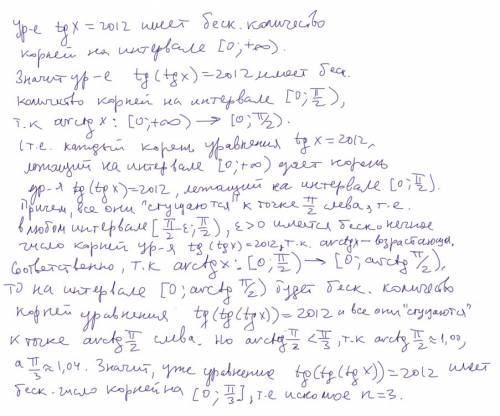 Ур-е tg x = 2012 имеет беск. количество
корней на интервале [0; +∞).
Значит ур-е tg(tg x) = 2012 имеет бес.
количество корней на интервале [0; π/2),
т.к arctg x: [0; +∞) → [0; π/2).
(т.е. каждый корень уравнения tg x = 2012,
лежащий на интервале [0; +∞) дает корень
ур-я tg(tg x) = 2012, лежащий на интервале [0; π/2).
Причем, все они "сгущаются" к точке π/2 слева, т.е.
в любом интервале [π/2 - ε; π/2), ε > 0 имеется бесконечное
число корней ур-я tg(tg x) = 2012, т.к. arctg x – возрастающа.
Соответственно, т.к arctg x: [0; π/2) → [0; arctg π/2),
то на интервале [0; arctg π/2) будет беск. количество
корней уравнения tg(tg(tg x)) = 2012 и все они "сгущаются"
к точке arctg π/2 слева. Но arctg π/2 < π/3, т.к arctg π/2 ≈ 1,00,
а π/3 ≈ 1,04. Значит, уже уравнение tg(tg(tg x)) = 2012 имеет
беск. число корней на [0; π/3], т.е искомое n = 3.